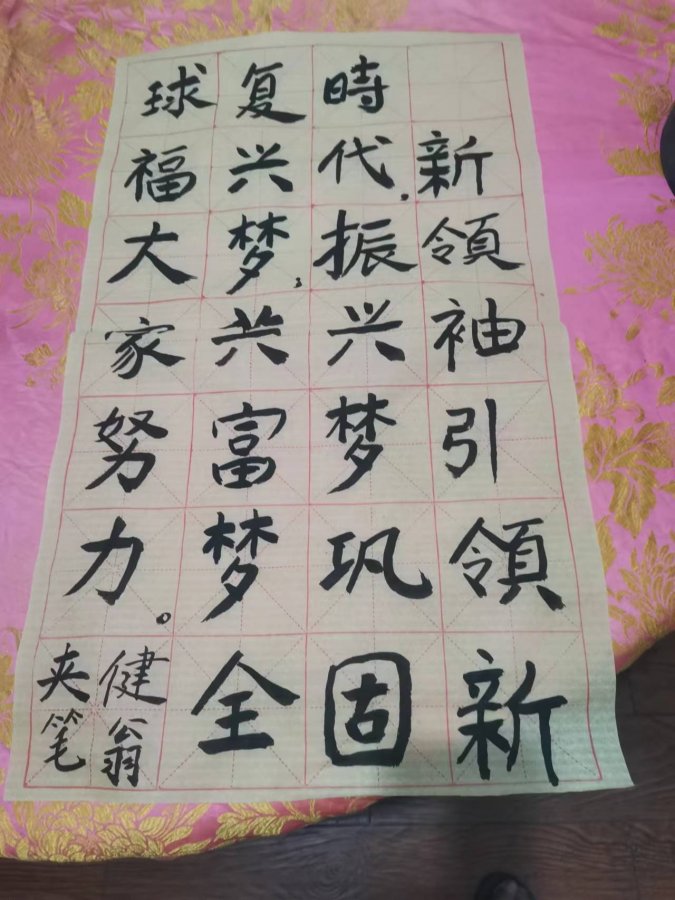 新領袖引領新
時代，振兴梦巩固
复兴梦，共富梦全
球福大家努力。
健翁
夹笔